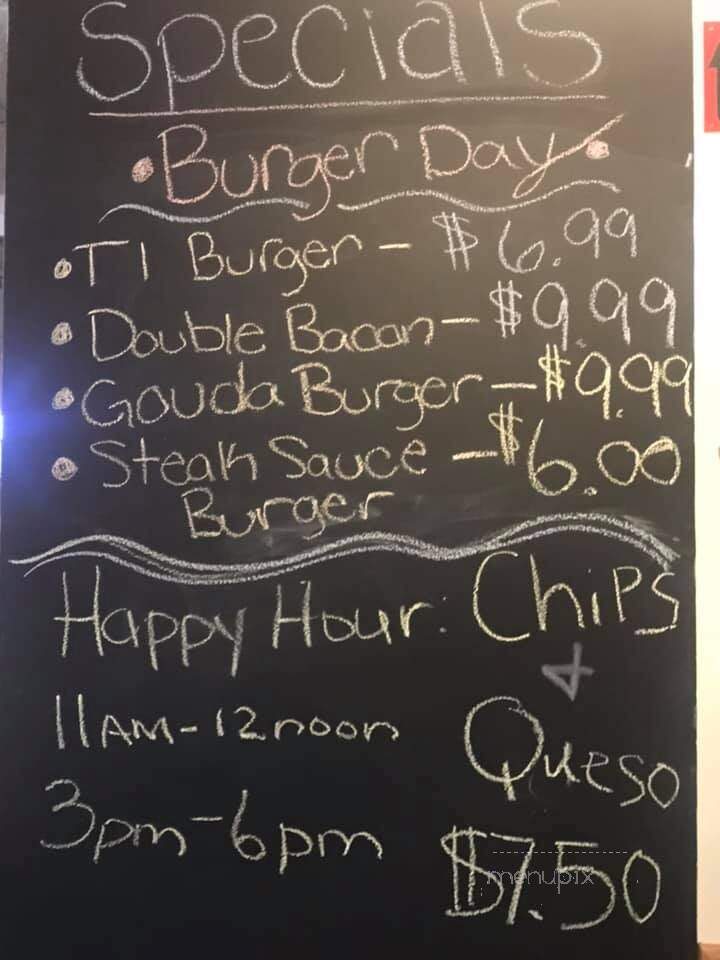 Specials
• Burger Day •
• TI Burger - $6.99
• Double Bacon - $9.99
• Gouda Burger - $9.99
• Steak Sauce - $6.00
Burger
Happy Hour:
11AM-12noon
3pm-6pm
Chips
&
Queso
$7.50
menupix